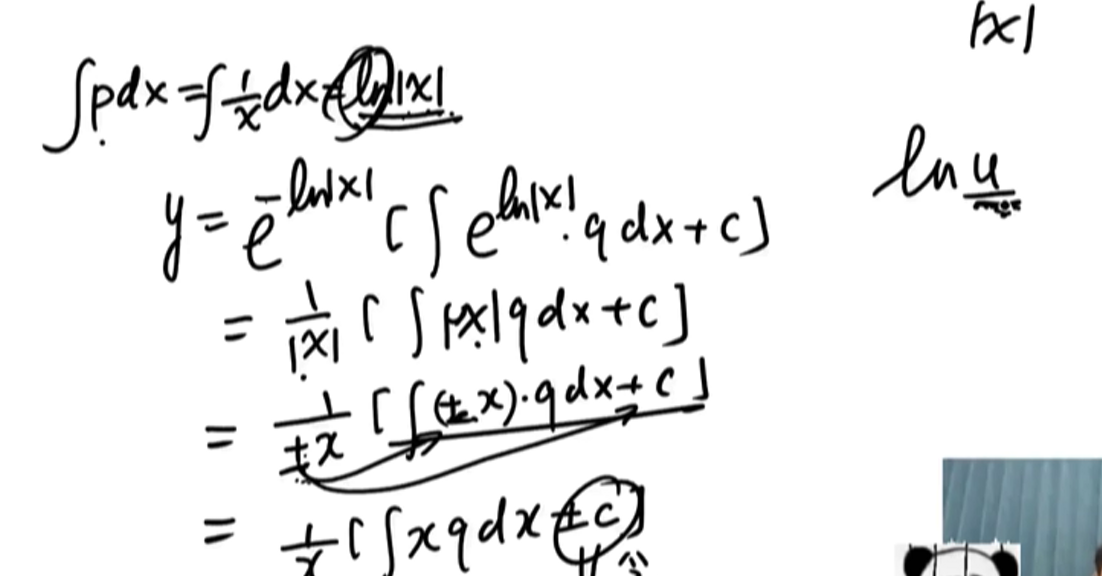 |x|
∫pdx=∫1/x dx=ln|x|
ln u
y = e^{-ln|x|} [∫ e^{ln|x|}·q dx + c]
= 1/|x| [∫ |x| q dx + c]
= 1/±x [∫(±x)·q dx + c]
= 1/x [∫xq dx ± c]